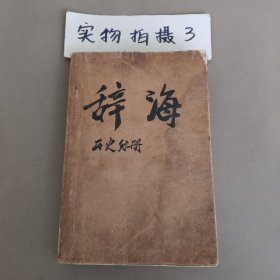 实物拍摄3
辞海
历史分册